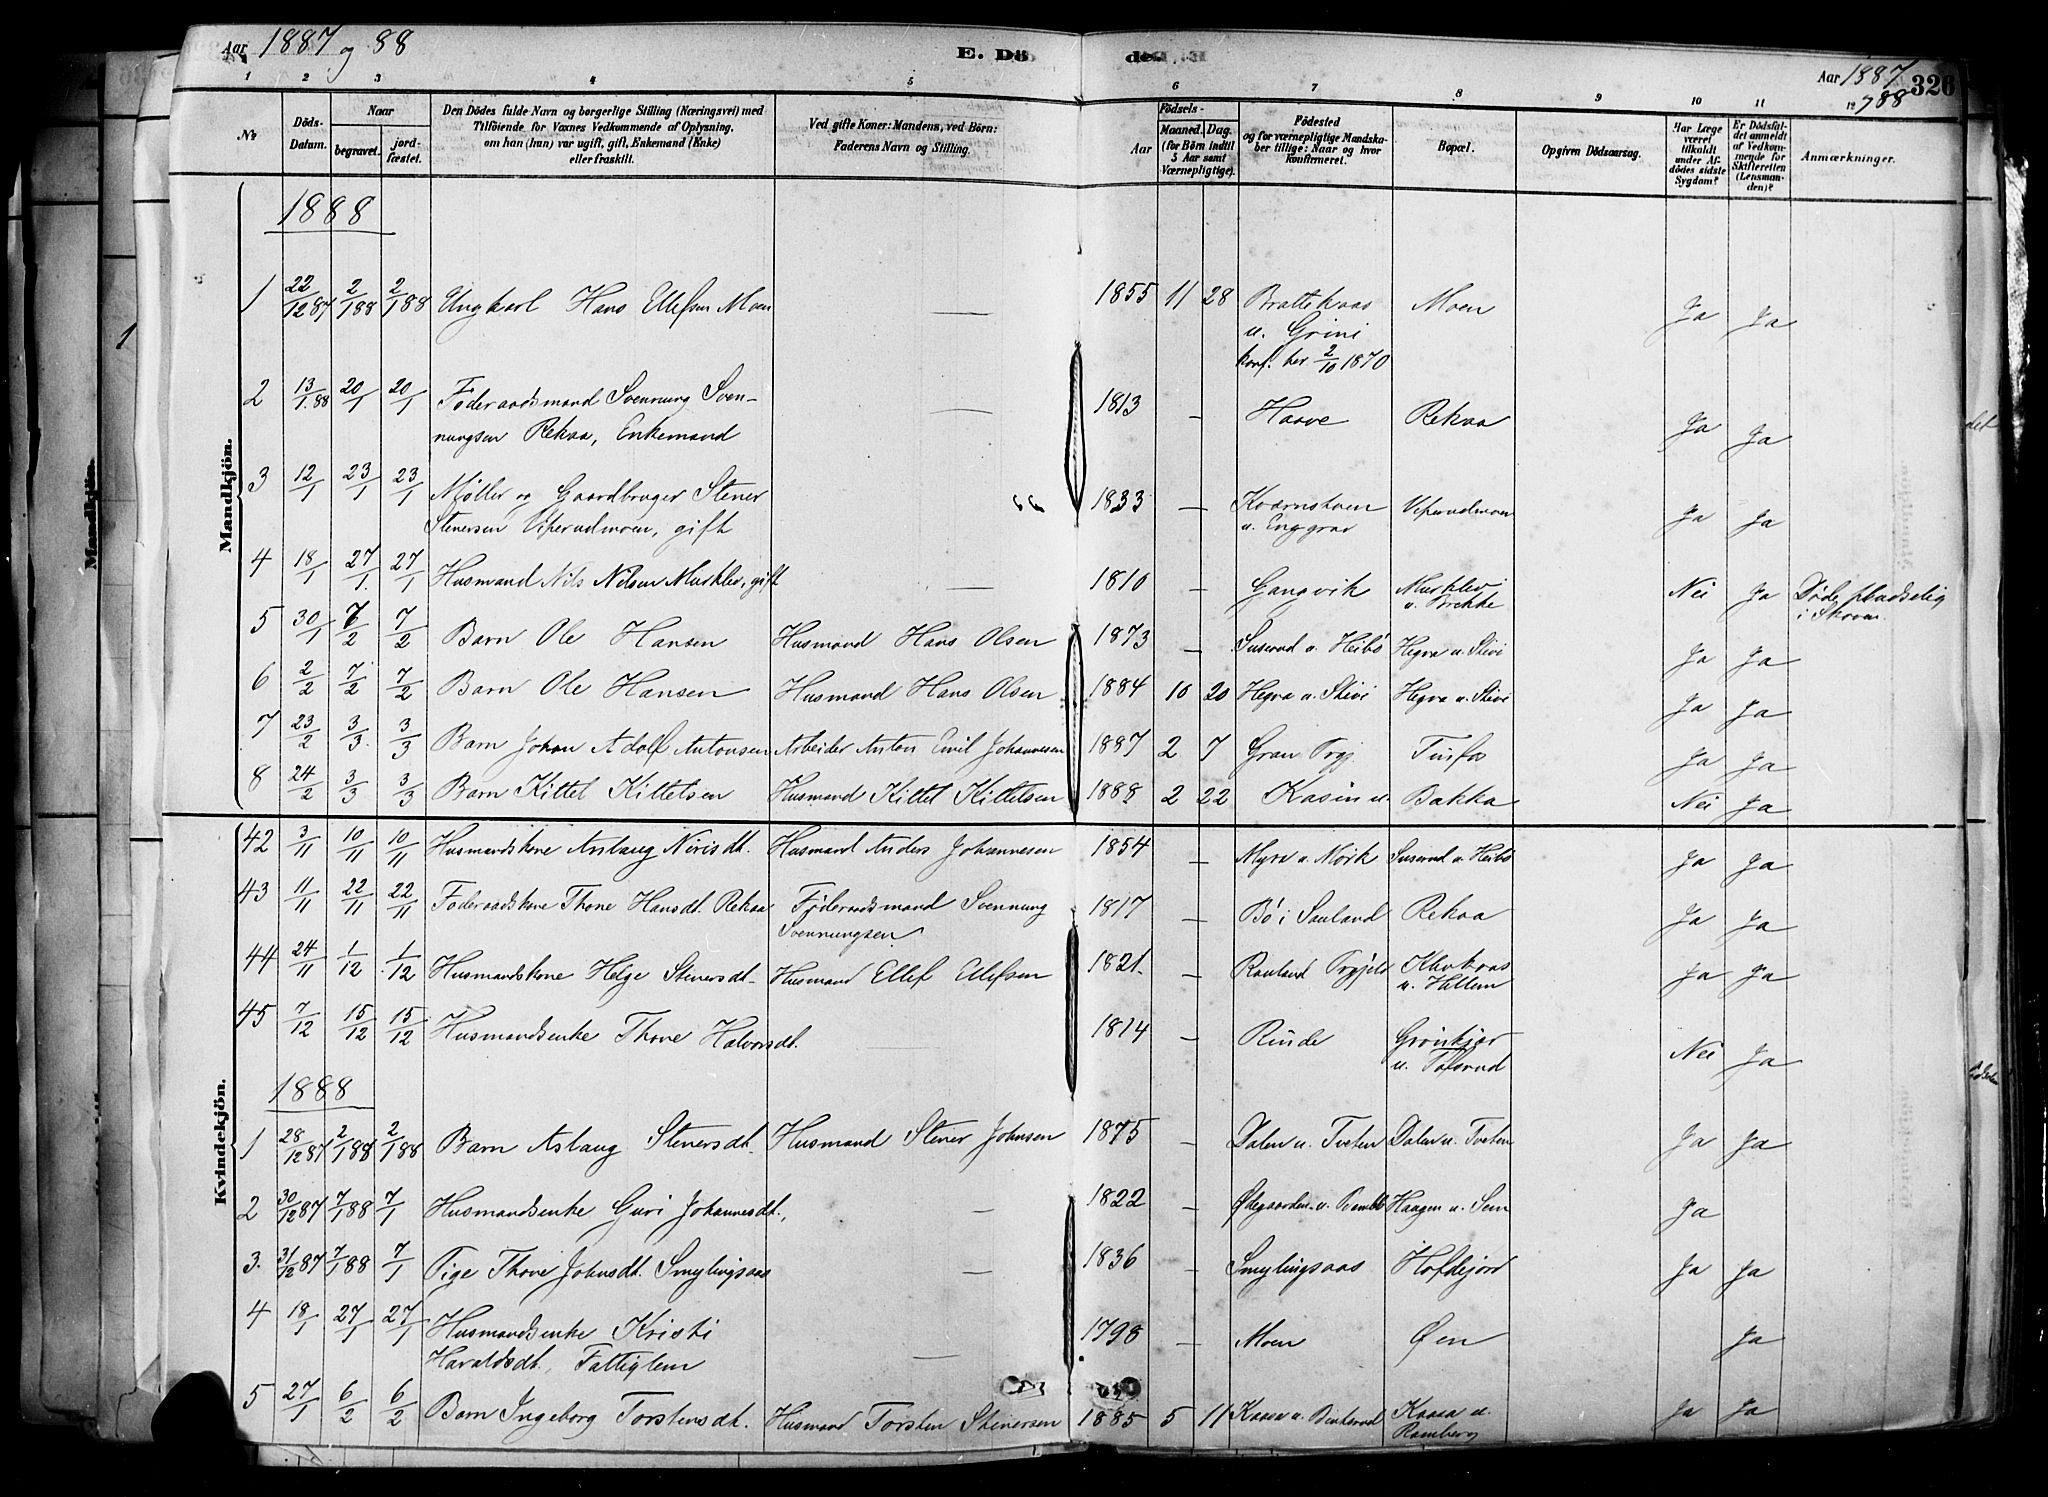 Aar 1887 og 88
E. Dö de.
Aar 1887
326
og 88
1 2 3 4 5 6 7 8 9 10 11
№
Döds-Datum.
Naar
begravet.
jord-fæstet.
Den Dödes fulde Navn og borgerlige Stilling (Næringsvei) med
Tilföiende for Voxnes Vedkommende af Oplysning,
om han (hun) var ugift, gift, Enkemand (Enke)
eller fraskilt.
Ved gifte Koner: Mandens, ved Börn:
Faderens Navn og Stilling.
Födsels-
Aar
Maaned. Dag.
(for Börn indtil
5 Aar samt
Værnepligtige).
Födested
og for værnepligtige Mandska-
ber tillige: Naar og hvor
konfirmeret.
Bopæl.
Opgiven Dödsaarsag.
Har Læge
været
tilkaldt
under Af-
dödes sidste
Sygdom?
Er Dödsfal-
det anmeldt
af Vedkom-
mende for
Skifteretten
(Lensman-
den)?
Anmærkninger.
Mandkjön.
1888
1 22/12 87 2/1 88 2/1 88 Ungkarl Hans Ellefsen Moen — 1855 11 28 Brattekaas Moen Ja Ja
u. Grini
konf. her 2/10 1870
2 13/1.88 20/1 20/1 Föderaadsmand Svennung Sven- — 1813 — Haave Rekaa Ja Ja
nungsen Rekaa, Enkemand
3 12/1 23/1 23/1 Møller og Gaardbruger Stener 1833 — Kværnstuen Viperudmoen Ja Ja
Stenersen Viperudmoen, gift u. Enggrav
4 18/1 27/1 27/1 Husmand Nils Nilsen Murklev, gift — 1810 — Gangvik Murklev Nei Ja Döde pludselig
u. Brekke i Skoven
5 30/1 7/2 7/2 Barn Ole Hansen Husmand Hans Olsen 1873 — Suserud u. Heibö Hegva u. Skivi Ja Ja
6 2/2 7/2 7/2 Barn Ole Hansen Husmand Hans Olsen 1884 10 20 Hegva u. Skivi Hegva u. Skivi Ja Ja
7 23/2 3/3 3/3 Barn Johan Adolf Antonsen Arbeider Anton Emil Johannesen 1887 2 7 Gran Prgj. Tinfos Ja Ja
8 24/2 3/3 3/3 Barn Kittel Kittelsen Husmand Kittel Kittelsen 1888 2 22 Kasin u. Bakka Nei Ja
Kvindekjön.
42 3/11 10/11 10/11 Husmandskone Aslaug Nirisdt. Husmand Anders Johannesen 1854 — Myra u. Nörk Suserud u. Heibö Ja Ja
43 11/11 22/11 22/11 Föderaadskone Thone Hansdt. Rekaa Föderaadsmand Svennung 1817 — Bö i Sauland Rekaa Ja Ja
Svennungsen
44 24/11 1/12 1/12 Husmandskone Helge Stenersdt. Husmand Ellef Ellefsen 1821. — Rauland Prgjeld Ja Ja
u. Hallem
45 7/12 15/12 15/12 Husmandsenke Thone Halvorsdt. — 1814 — Rinde Grönkjær Nei Ja
u. Tofsrud
1888
1 28/12 87 2/1 88 2/1 88 Barn Aslaug Stenersdt. Husmand Stener Johnsen 1875 — Dalen u. Tveten Dalen u. Tveten Ja Ja
2 30/12 87 7/1 88 7/1 Husmandsenke Guri Johannesdt., — 1822 — Ødegaarden u. Haagen u. Sem Ja
3. 31/12 87 7/1 88 7/1 Pige Thone Johnsdt. Smylingsaas — 1836 — Smylingsaas Hofdejord Ja Ja
4 18/1 27/1 27/1 Husmandsenke Kristi 1798 — Moen Øen Ja
Haraldsdt., Fattiglem —
5 27/1 6/2 6/2 Barn Ingeborg Torstensdt. Husmand Torsten Stenersen 1885 5 11 Kaasa u. Kaasa u. Ja Ja
Ramberg